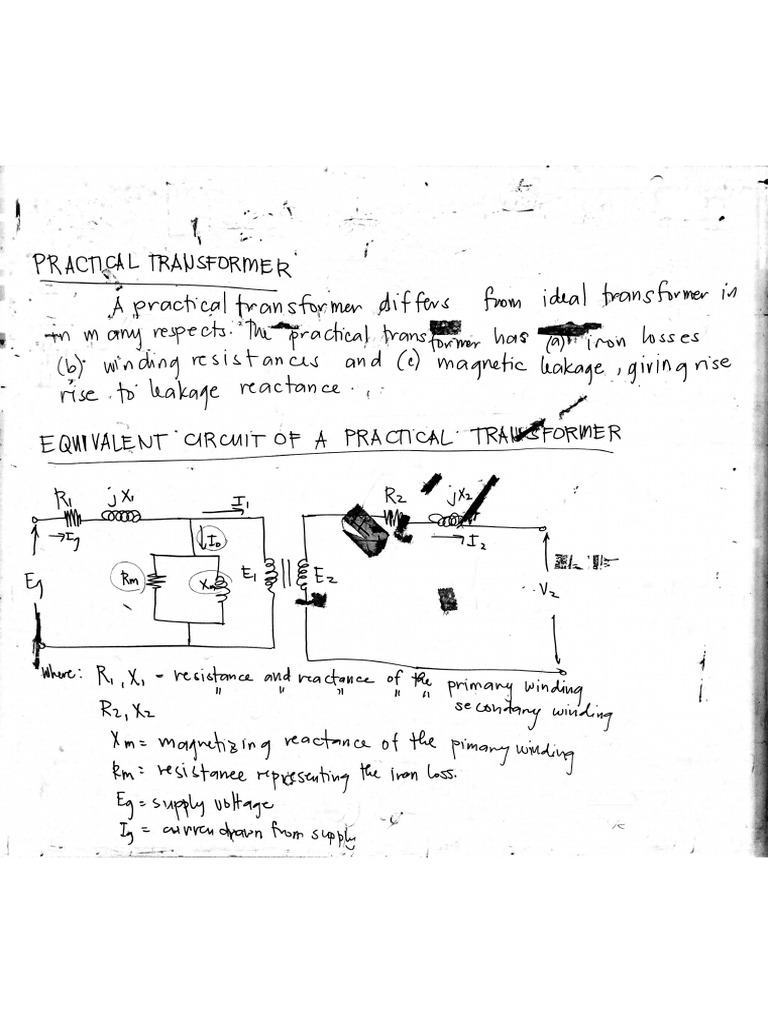 PRACTICAL TRANSFORMER
A practical transformer differs from ideal transformer in
in many respects. The practical transformer has (a) iron losses
(b) winding resistances and (c) magnetic leakage, giving rise
rise to leakage reactance.
EQUIVALENT CIRCUIT OF A PRACTICAL TRANSFORMER
R1 jX1 I1 R2 jX2
Ig I0 I2
Rm Xm E1 E2
Eg V2
Where: R1, X1 - resistance and reactance of the primary winding
R2, X2 " " " " " secondary winding
Xm = magnetizing reactance of the pimary winding
Rm = resistance representing the iron loss.
Eg = supply voltage
Ig = curren drawn from supply